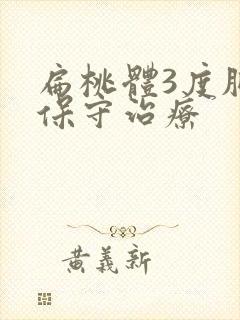 扁桃體3度
保守治療
黃義新